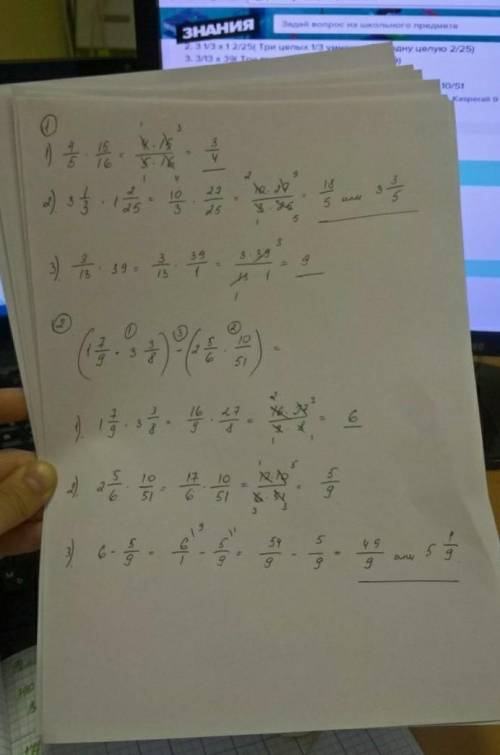 ЗНАНИЯ
Задай вопрос из школьного предмета
2. 3 1/3 x 1 2/25( Три целых 1/3 одну целую 2/25)
3. 3/13 x 39(
10/51
①
1) 4/5 · 15/16 = 4·15/5·16 = 3/4
2) 3 1/3 · 1 2/25 = 10/3 · 27/25 = 10·27/3·25 = 18/5 или 3 3/5
3) 3/13 · 39 = 3/13 · 39/1 = 3·39/13·1 = 9
②
(1 7/9 · 3 3/8) - (2 5/6 · 10/51) =
1) 1 7/9 · 3 3/8 = 16/9 · 27/8 = 16·27/9·8 = 6
2) 2 5/6 · 10/51 = 17/6 · 10/51 = 17·10/6·51 = 5/9
3) 6 - 5/9 = 6/1 - 5/9 = 54/9 - 5/9 = 49/9 или 5 4/9